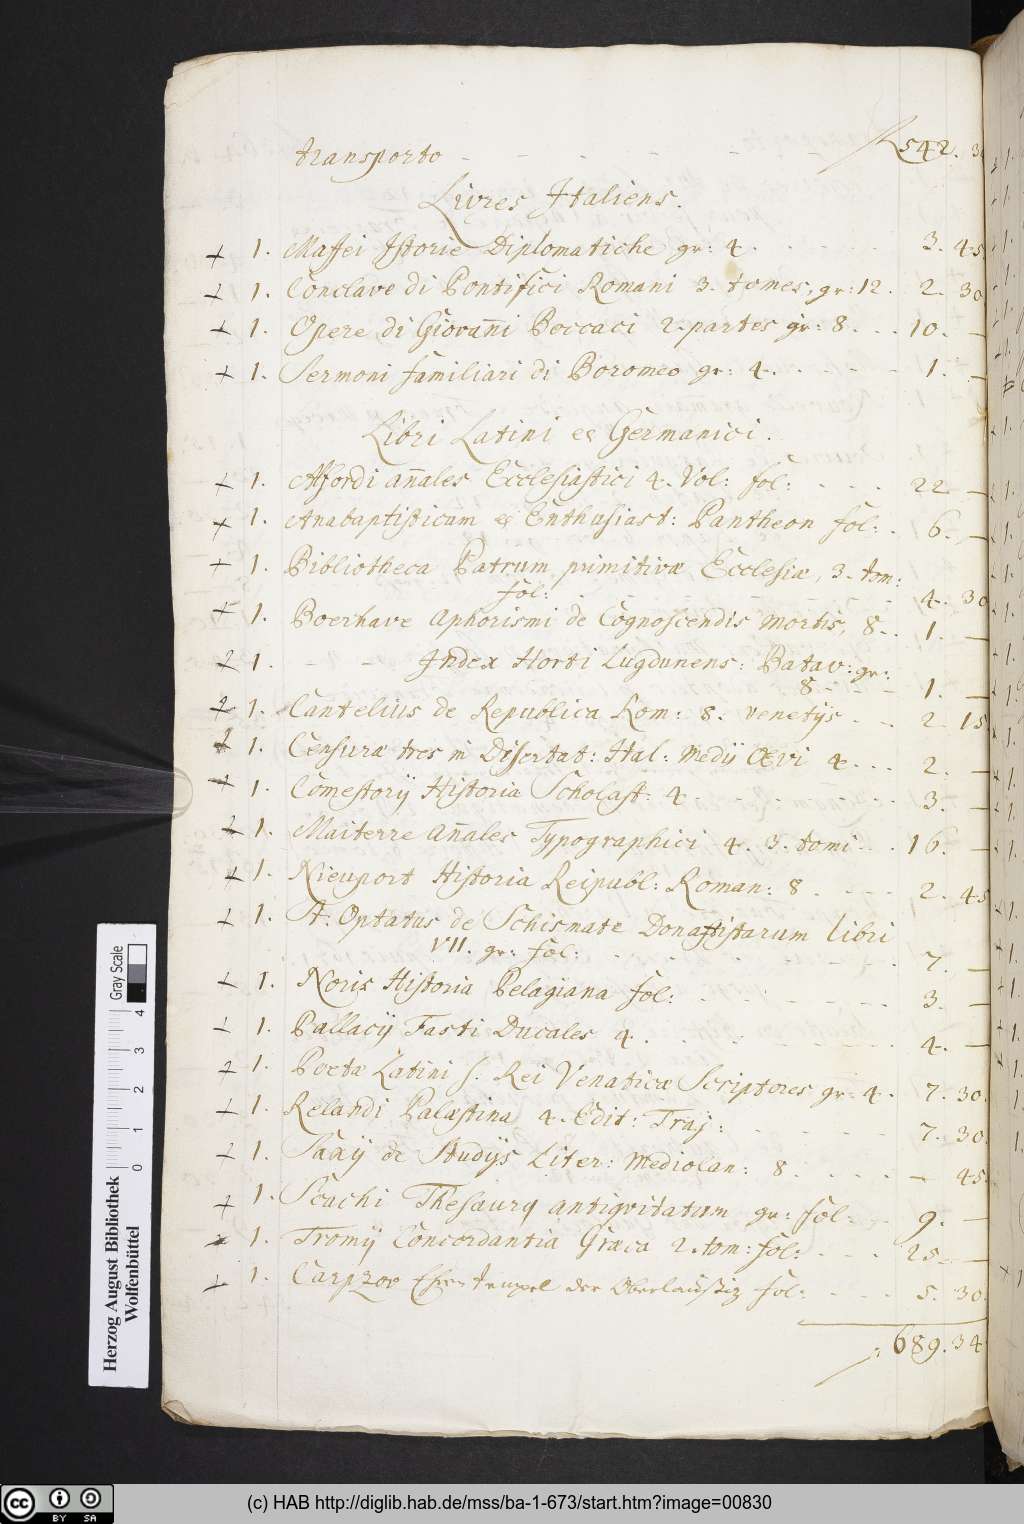 transporto - - - - - - R 542. 3
Livres Italiens.
+ 1. Maffei Istorie Diplomatiche gr: 4. - - - - 3. 45
+ 1. Conclave di Pontifici Romani 3. tomes, gr: 12. 2. 30
+ 1. Opere di Giovañi Boccaci 2. partes gr: 8. - - - 10. —
+ 1. Sermoni familiari di Boromeo gr: 4. - - - - 1. —
Libri Latini et Germanici.
+ 1. Alfordi añales Ecclesiastici 4. Vol: fol: - - - 22 —
+ 1. Anabaptisticum et Enthusiast: Pantheon fol: . 6. —
+ 1. Bibliotheca Patrum primitivæ Ecclesiæ, 3. tom:
fol: - - - - - - 4. 30
+ 1. Boerhave Aphorismi de Cognoscendis morbis, 8. . 1. —
+ 1. - - - Index Horti Lugdunens: Batav: gr:
8 - - - 1. —
+ 1. Cantelius de Republica Rom: 8. venetÿs - - 2. 15
+ 1. Censuræ tres in Disertat: Ital: Medÿ Œvi 4. - - - 2. —
+ 1. Comestorÿ Historia Scholast: 4 - - - - - 3. —
+ 1. Maiterre Añales Typographici 4. 3. tomi - - 16. —
+ 1. Nieuport Historia Reipubl: Roman: 8. - - - 2. 45
+ 1. St. Optatus de Schismate Donatistarum libri
VII. gr: fol: - - - - - 7. —
+ 1. Noris Historia Pelagiana fol: - - - - - 3. —
+ 1. Pallacÿ Fasti Ducales 4. - - - - - - 4. —
+ 1. Poetæ Latini s. Rei Venaticæ Scriptores gr: 4. 7. 30.
+ 1. Relandi Palæstina 4. Edit: Traj: - - - - 7. 30.
+ 1. Saxÿ de Studÿs Liter: Mediolan: 8. - - - - — 45.
+ 1. Scachi Thesaurq antiqvitatum gr: fol: - 9. —
+ 1. Tromÿ Concordantia Græca 2. tom: fol: - - - 25. —
+ 1. Carpzov Ehren tempel der Oberlaußiz fol: - - - 5. 30.
: 689. 34
Gray Scale
0 1 2 3 4
Herzog August Bibliothek
Wolfenbüttel
cc BY SA
(c) HAB http://diglib.hab.de/mss/ba-1-673/start.htm?image=00830